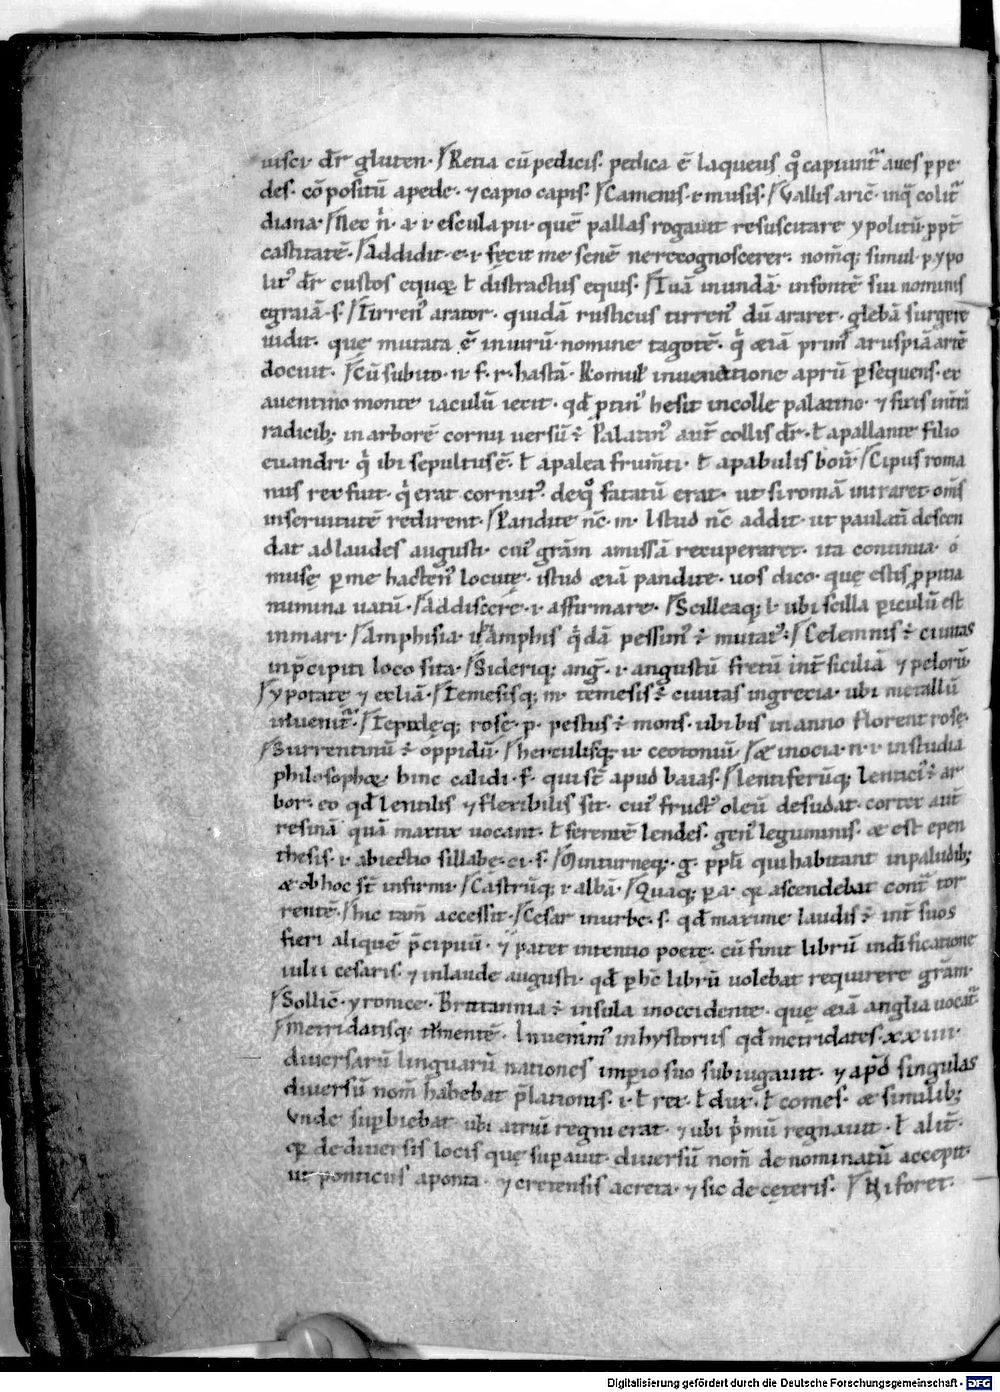 uisci· dr̄ gluten· Retia cū pedicis· pedica ē laqueus qͦ capiunt̄ aues p̱ pe
des· cōpositū a pede· ⁊ capio capis· Camenis· i· musis· Vallis aric̄· in q̄ colit̄
diana· Nec n̄· a· i· esculapii· quē pallas rogauit resuscitare ypolitū ꝓpt̄
castitatē· Addidit· e· i· fęcit me senē ne recognoscerer· nomq; simul· p· ypo
lit' dr̄ custos equoꝝ· ł distractus equis· Tuā in undā· in fontē sui nominis
egeriā· s· Tirren' arator· quidā rusticus tirren' dū araret· glebā surgere
uidit· quę mutata ē in uirū nomine tagetē· q̇ etiā prim' aruspiciā artē
docuit· Cū subito· n· f· r· hastā· Romul' in uenatione aprū ꝑsequens· ex
auentino monte iaculū iecit· qd̄ ꝓtin' hesit in colle palatino· ⁊ fixis intra
radicib; in arborē cornū uersū ē· Palatin' aut̄ collis dr̄· ł a pallante filio
euandri· q̇ ibi sepultus ē· ł a palea frum̄ti· ł a pabulis boū· Cipus roma
nus rex fuit· q̇ erat cornut'· de qͦ fatatū erat· ut si romā intraret om̄s
in seruitutē redirent· Pandite nc̄· m· Istud nc̄ addit· ut paulatī descen
dat ad laudes augusti· cui' grām amissā recuperaret· ita continua· o
musę ꝑ me hacten' locutę· istud etiā pandite· uos dico· quę estis ꝓpitia
numina uatū· Addiscere· i· affirmare· Scilleaq; l· ubi scilla ꝑiculū est
in mari· Amphisia· ił amphis q̇dā pessim' ē mutat'· Celennis ē ciuitas
in p̄cipiti loco sita· Sideriq; ang̅· i· angustū fretū int̄ siciliā ⁊ pelorū
ypotate ⁊ exliā· Temesisq; m· temesis ē ciuitas in grecia· ubi metallū
inuenit̄· Tepidęq; rosę· p· pestus ē mons· ubi bis in anno florent rosę·
Surrentinū ē oppidū· herculisq; u· ceotonii· æ in ocia· n· i· in studia
philosophoꝝ· hinc calidi· f· qui st̄ apud baias· lentiferūq; lentic' ē ar
bor· eo qd̄ lentilis ⁊ flexibilis sit· cui' fruct' oleū desudat· cortex aut̄
resinā quā matix uocant· ł ferentē lendes· gen' leguminis· æ est epen
thesis· i· abiectio sillabe· ci· s· Minturneq;· g· ꝓpt̄ qui habitant in paludib;
æ ob hoc st̄ infirmi· Castrūq; i· albā· Quaq; p· a· qꝛ ascendebat cont̄ tor
rentē· hic tam̄ accessit· Cesar in urbe· s· qd̄ maxime laudis ē int̄ suos
fieri aliquē p̄cipuū· ⁊ patet intentio poete· cū finit librū in deificatione
iulii cesaris· ⁊ in laude augusti· qd̄ ꝑ hc̄ librū uolebat requirere grām·
Sollic̄· yronice· Britannia ē insula in occidente· quę etiā anglia uocat̄
metridatisq; tumentē· Inuenim' in hystoriis qd̄ metridates· xxiiii·
diuersarū linguarū nationes imꝑio suo subiugauit· ⁊ apd̄ singulas
diuersū nom̄ habebat p̄lationis· i· ł rex· ł dux· ł comes· æ similib;
Vnde suꝑbiebat ubi atriū regni erat· ⁊ ubi p̄mū regnauit· ł alit̄·
qꝛ de diuersis locis quę suꝑauit· diuersū nom̄ denominatū accepit·
ut ponticus a ponta· ⁊ cretensis a creta· ⁊ sic de cęteris· Ni foret·
Digitalisierung gefördert durch die Deutsche Forschungsgemeinschaft - DFG